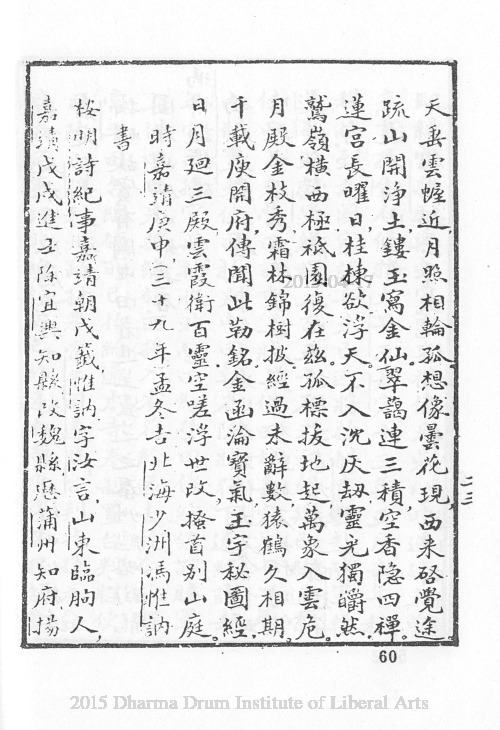 天垂雲幄近。月照相輪孤。想像曇花現。西來啓覺途
疏山開淨土。鏤玉寫金仙。翠藹連三積。空香隱四禪。
蓮宮長曜日。桂棟欲浮天。不入沈灰劫。靈光獨皭然。
鷲嶺橫西極。祇園復在茲。孤標拔地起。萬象入雲危。
月殿金枝秀。霜林錦樹披。經過未辭數。猿鶴久相期。
千載庾開府。傳聞此勒銘。金函淪寶氣。玉字秘圖經
日月廻三殿。雲霞衛百靈。空嗟浮世改。搔首別山庭。
時嘉靖庚申、(三十九年)孟冬吉北海少洲馮惟訥
書
桉明詩紀事嘉靖朝戊籤惟訥字汝言、山東臨朐人、
嘉靖戊戌進士除宜興知縣改魏縣歷蒲州知府揚
二三
60
2015 Dharma Drum Institute of Liberal Arts